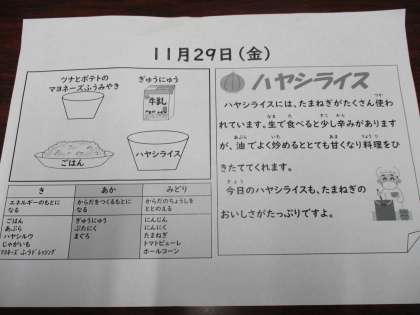 11月29日(金)
ツナとポテトの
マヨネーズふうみやき
ぎゅうにゅう
牛乳
ごはん
ハヤシライス
き
あか
みどり
エネルギーのもとに
なる
からだをつくるもとに
なる
からだのちょうしを
ととのえる
ごはん
あぶら
ハヤシルウ
じゃがいも
マヨネーズ ふうドレッシング
ぎゅうにゅう
ぶたにく
まぐろ
にんじん
にんにく
たまねぎ
トマトピューレ
ホールコーン
ハヤシライス
ハヤシライスには、たまねぎがたくさん使わ
れています。生で食べると少し辛みがあります
が、油でよく炒めるととても甘くなり料理をひ
きたててくれます。
今日のハヤシライスも、たまねぎの
おいしさがたっぷりですよ。